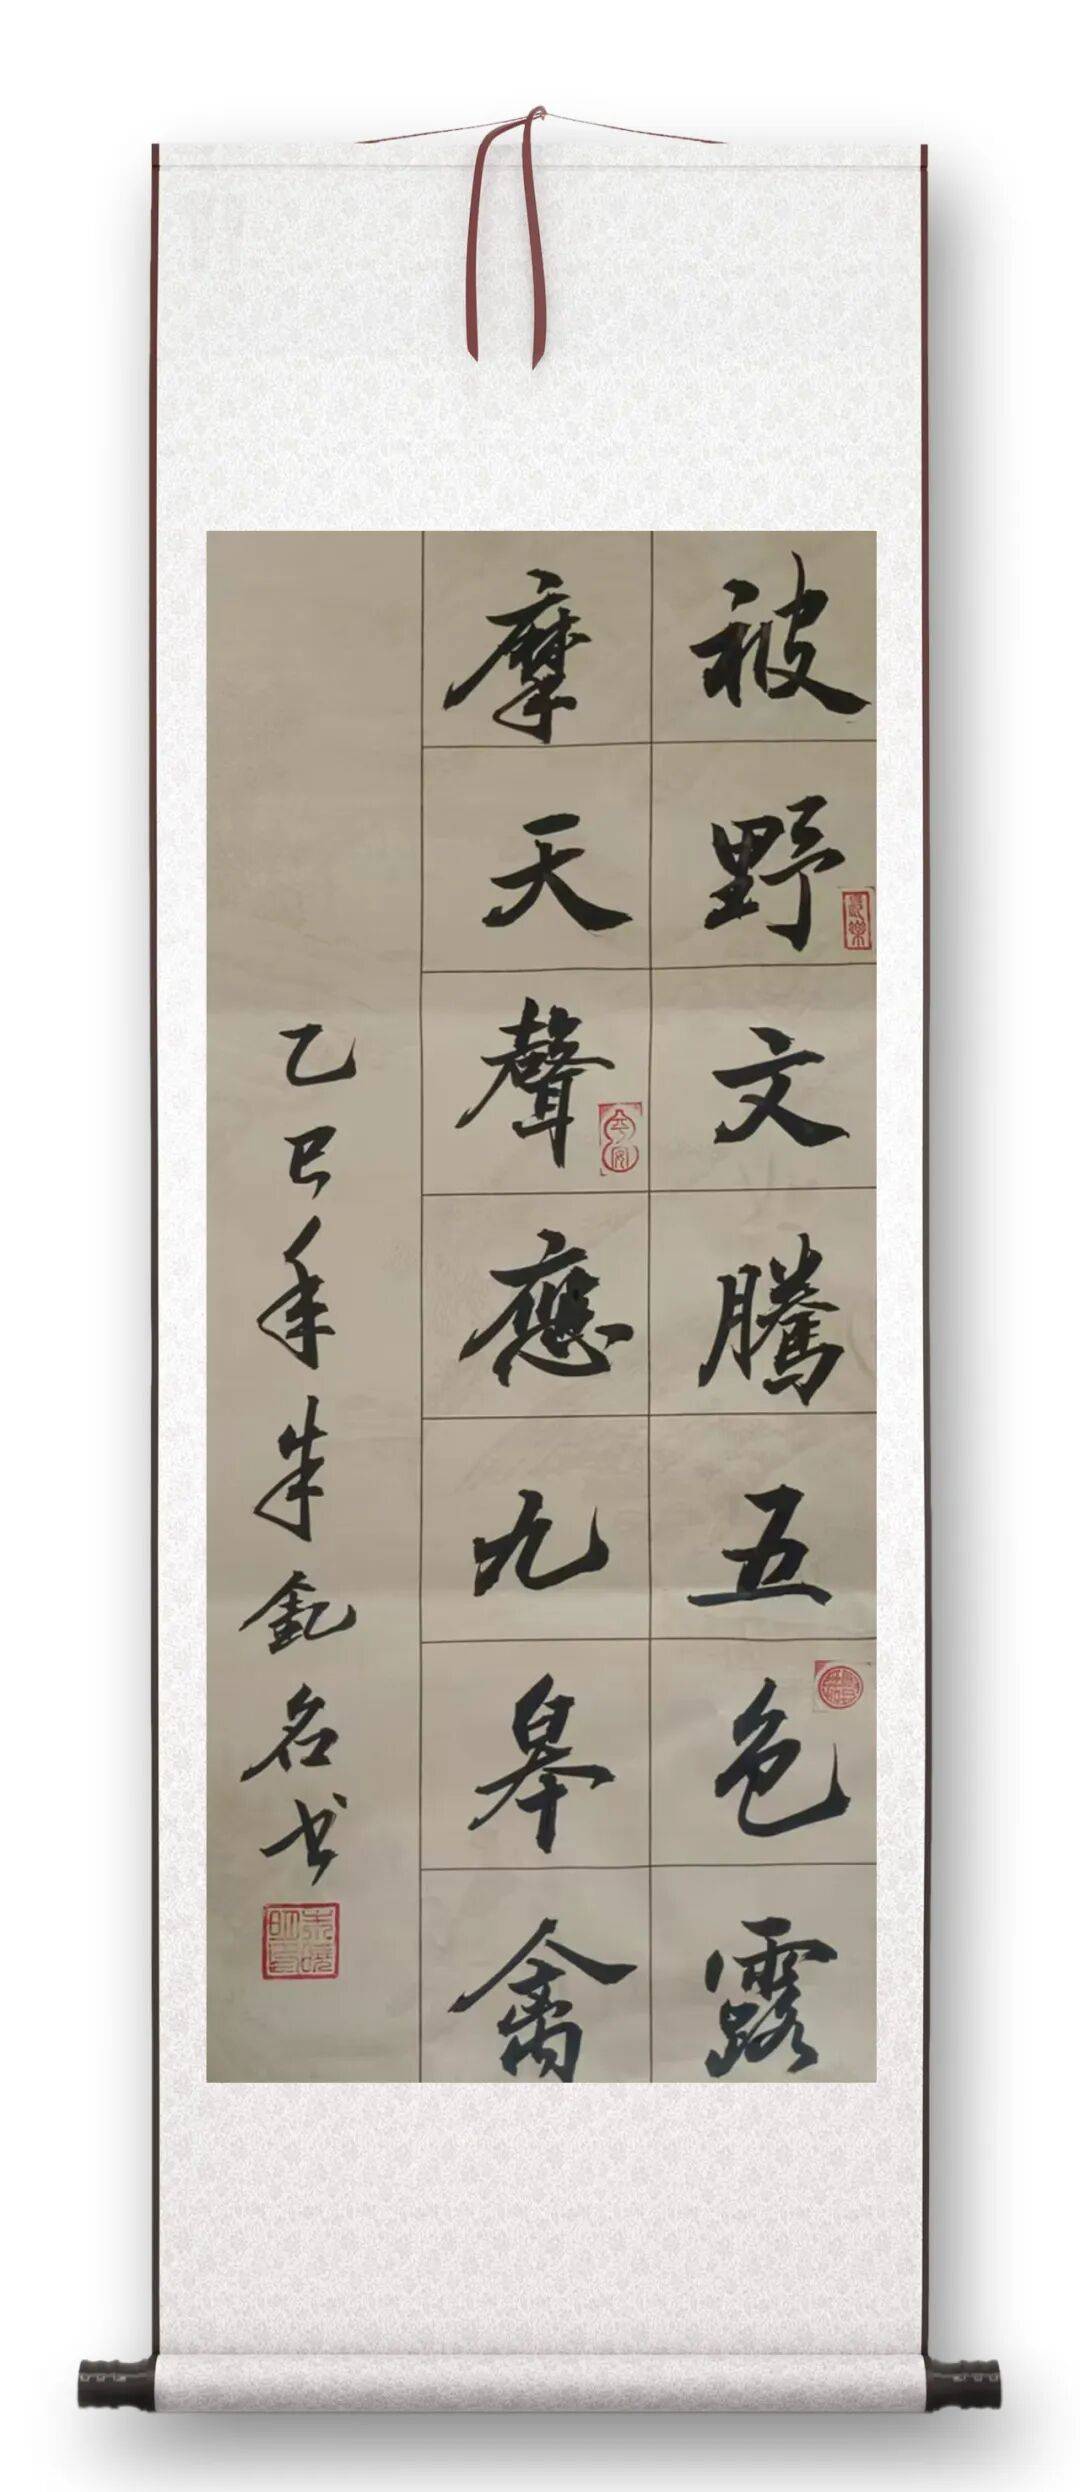 被野文騰五色露
摩天聲應九皋禽
乙巳年朱釓名书